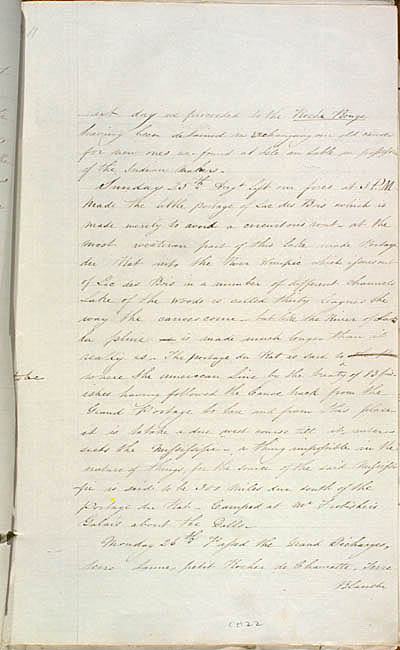 11
next day we proceeded to the Roche Rouge
having been detained in exchanging our old canoe
for new ones we found at Isle au Sable in possession
of the Indian makers.
Sunday 25th Augt left our fires at 3 P.M.
made the little Portage of Lac des Bois which is
made merely to avoid a circuitous rout at the
most western part of this Lake made Portage
du Rat into the River which flows out
of Lac des Bois in a number of different channels
Lake of the Woods is called thirty leagues the
way the canoes come but like the River of
la is made much longer than it
really is. The Portage du Rat is said to
to be
where the american Line by the treaty of 1783
having followed the Canoe track from the
Grand Portage to here and from this place
it is to take a due west course till it inter-
sects the Mississippi a thing impossible in the
nature of things for the source of the said Mississip-
pi is said to be 300 miles due south of the
Portage du Rat. Camped at Mr
Galais about the Dalls.
Monday 26th Passed the Grand Decharge,
Terre Jaune, petit Rocher de Charette, Terre
Blanche
0022